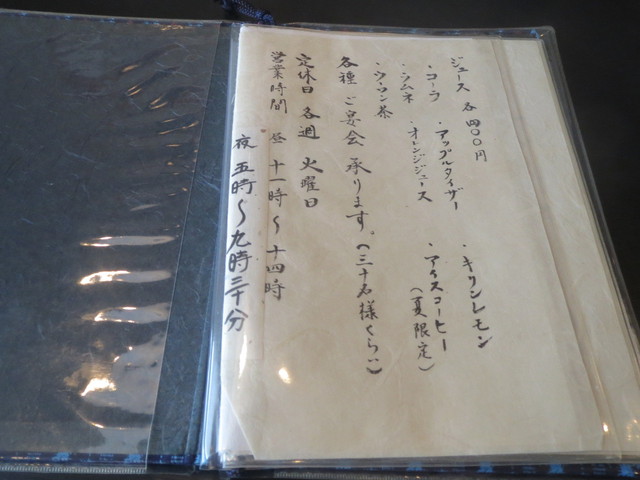 ジュース 各 四〇〇円
・コーラ ・アップルタイザー ・キリンレモン
・ラムネ ・オレンジジュース ・アイスコーヒー(夏限定)
・ウーロン茶
各種 ご宴会 承ります。(三十名様くらい)
定休日 各週 火曜日
営業時間 昼 十一時〜十四時
夜 五時〜九時三十分